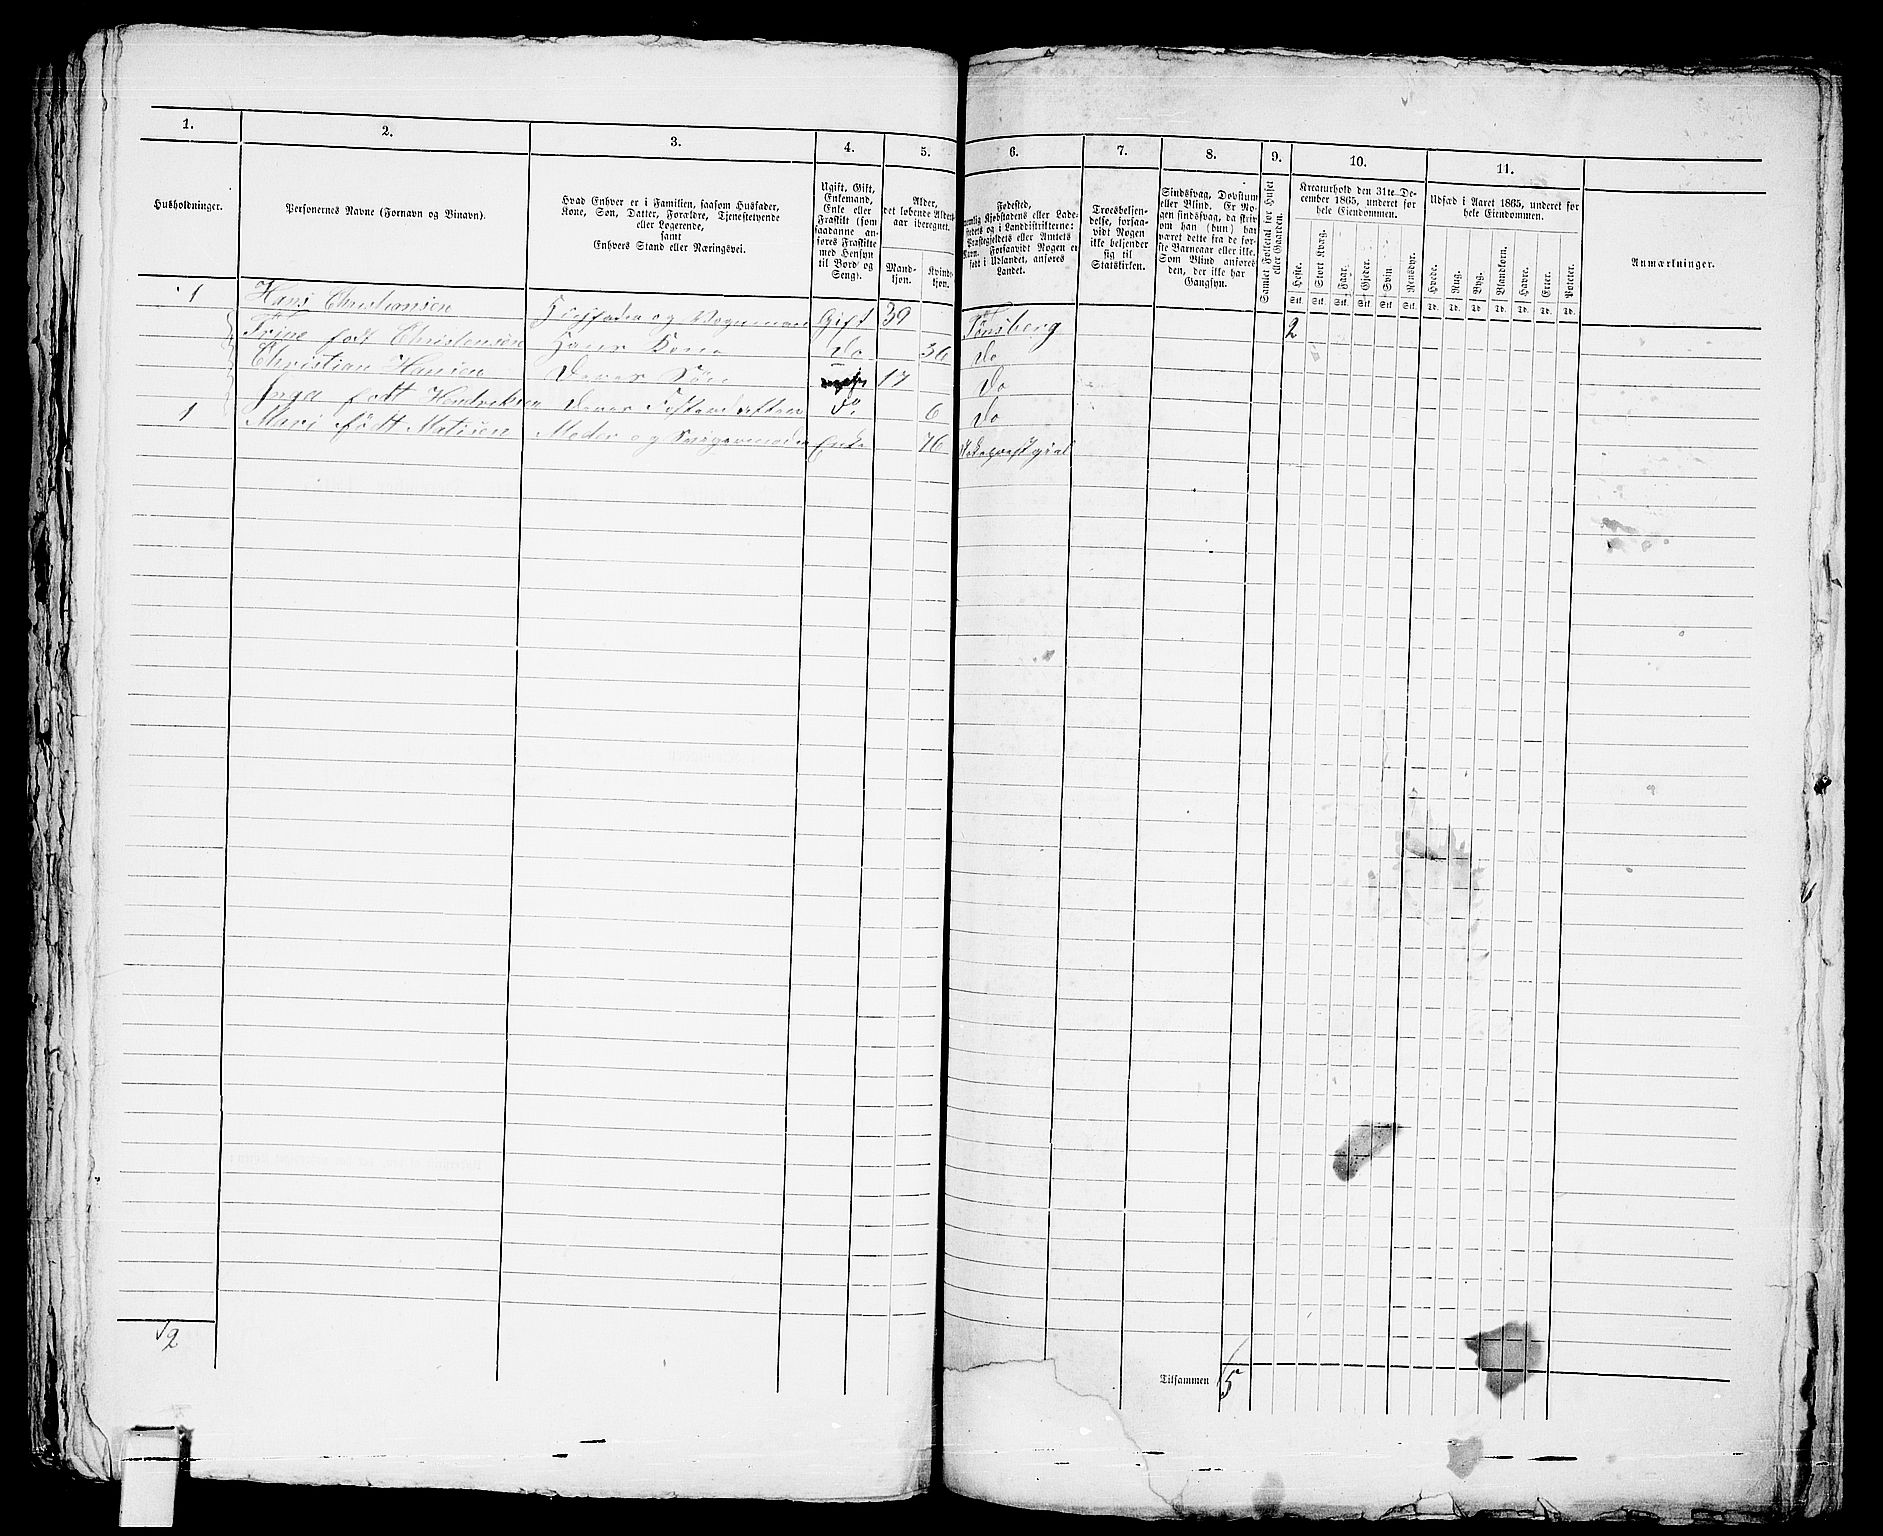 1. 2. 3. 4. 5. 6. 7. 8. 9. 10. 11.
Husholdninger.
Personernes Navne (Fornavn og Tilnavn).
Hvad Enhver er i Familien, saasom Husfader,
Kone, Søn, Datter, Forældre, Tjenestetyende
eller Logerende,
samt
Enhvers Stand eller Næringsvei.
Ugift, Gift,
Enkemand,
Enke eller
Fraskilt (som
saadanne an-
føres Fraskilte
med Hensyn
til Bord og
Seng).
Alder,
det løbende Alders-
aar iberegnet.
Mand-
kjøn.
Kvind-
kjøn.
Fødested,
nemlig Kjøbstadens eller Lade-
stedets og i Landdistrikterne:
Præstegjeldets eller Amtets
Navn. Forsaavidt Nogen er
født i Udlandet, anføres
Landet.
Troesbekjen-
delse, forsaa-
vidt Nogen
ikke bekjender
sig til
Statskirken.
Sindssvag, Døvstum
eller Blind. Er No-
gen sindssvag, da skriv
om han (hun) har
været dette fra de før-
ste Barneaar eller ikke.
Som Blind anføres
den, der ikke har
Gangsyn.
Samlet Folketal for Huset
eller Gaarden.
Kreaturhold den 31te De-
cember 1865, underet for
hele Eiendommen.
Heste. Stort Kvæg. Faar. Gjeder. Svin. Rensdyr.
Stk. Stk. Stk. Stk. Stk. Stk.
Udsæd i Aaret 1865, underet for
hele Eiendommen.
Hvede. Rug. Byg. Blandkorn. Havre. Erter. Poteter.
Td. Td. Td. Td. Td. Td. Td.
Anmærkninger.
1 Hans Christiansen Huusfader og Vognmand Gift 39 Tønsberg 2
Trine født Christensen Hans Kone do 36 do
Christian Hansen Deres Søn ugift 17 do
Inga født Hendriksen Deres Fosterdatter do 6 do
1 Mari født Matisen Moder og Svigermoder Enke 76
2
Tilsammen 5